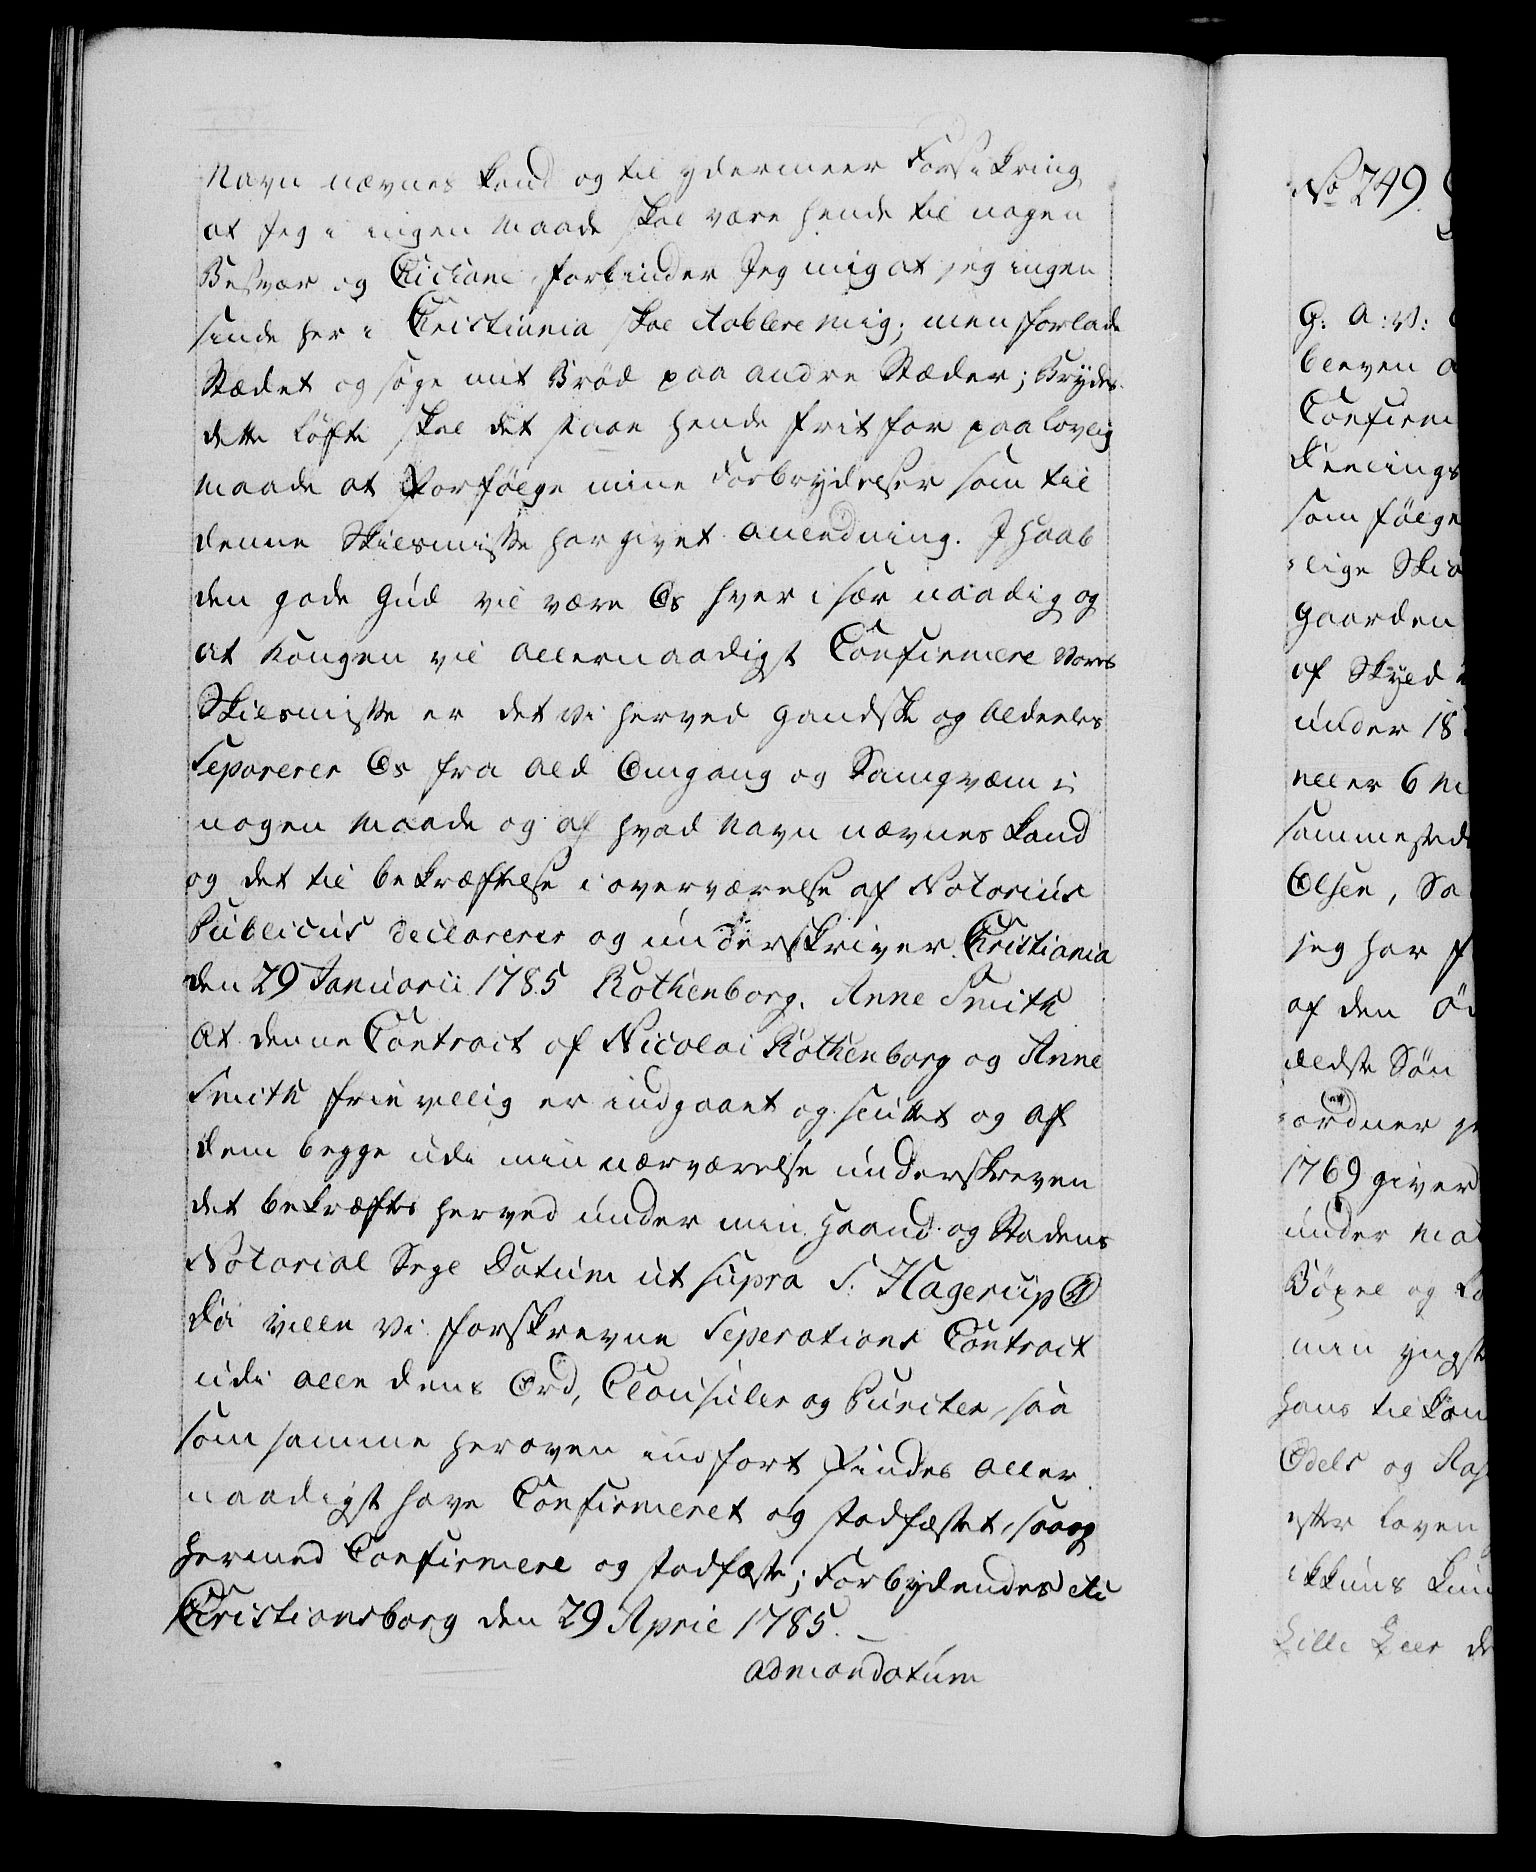 Navn nævnes kand og til ydermeer Forsikring
at Jeg i ingen Maade skal være hende til nogen
Besvær og Chicane forbinder Jeg mig at jeg ingen
sinde her i Christiania skal etablere mig; men forlade
Stædet og søge mit Brød paa andre Stæder; Brydes
dette Løfte skal det staae hende frit for paa lovlig
Maade at forfølge mine Forbrydelser som til
denne Skilsmisse har givet anledning. J Haab
den gode Gud vil være Os hver især naadig og
at Kongen vil allernaadigst Confirmere vores
Skilsmisse er det vi herved gandske og aldeeles
Separerer Os fra ald Omgang og Samqvæm i
nogen Maade og af hvad Navn nævnes kand
og det til bekræftelse i overværelse af Notarius
Publicus declarerer og underskriver. Christiania
den 29 Januarii 1785 Rothenborg. Anne Smith
At denne Contract af Nicolai Rothenborg og Anne
Smith frievillig er indgaaet og sluttet og af
dem begge udi min nærværelse underskreven
det bekræftes herved under min Haand og Stadens
Notarial Segl Datum ut supra S. Hagerup
Da ville Vi forskrevne Seperations Contract
udi alle dens Ord, Clausuler og Puncter, saa
som samme heroven indført findes aller
naadigst have Confirmeret og stadfæstet, saa og
hermed Confirmere og stadfæste; Forbydendes etc
Christiansborg den 29 April 1785.
ad mandatum
No 249.
G: A: V:
bleven
Confirm
Deelings
som følge
lige Skiø
Gaarden
af Skyld
under 18
eller 6 M
sammested
Olsen, Sa
jeg har f
af den
ældste Søn
ordner
1769 giver
under Mat
Bøxel og
min yngst
hans til kom
Odels og
efter Loven
ikkuns
Lille